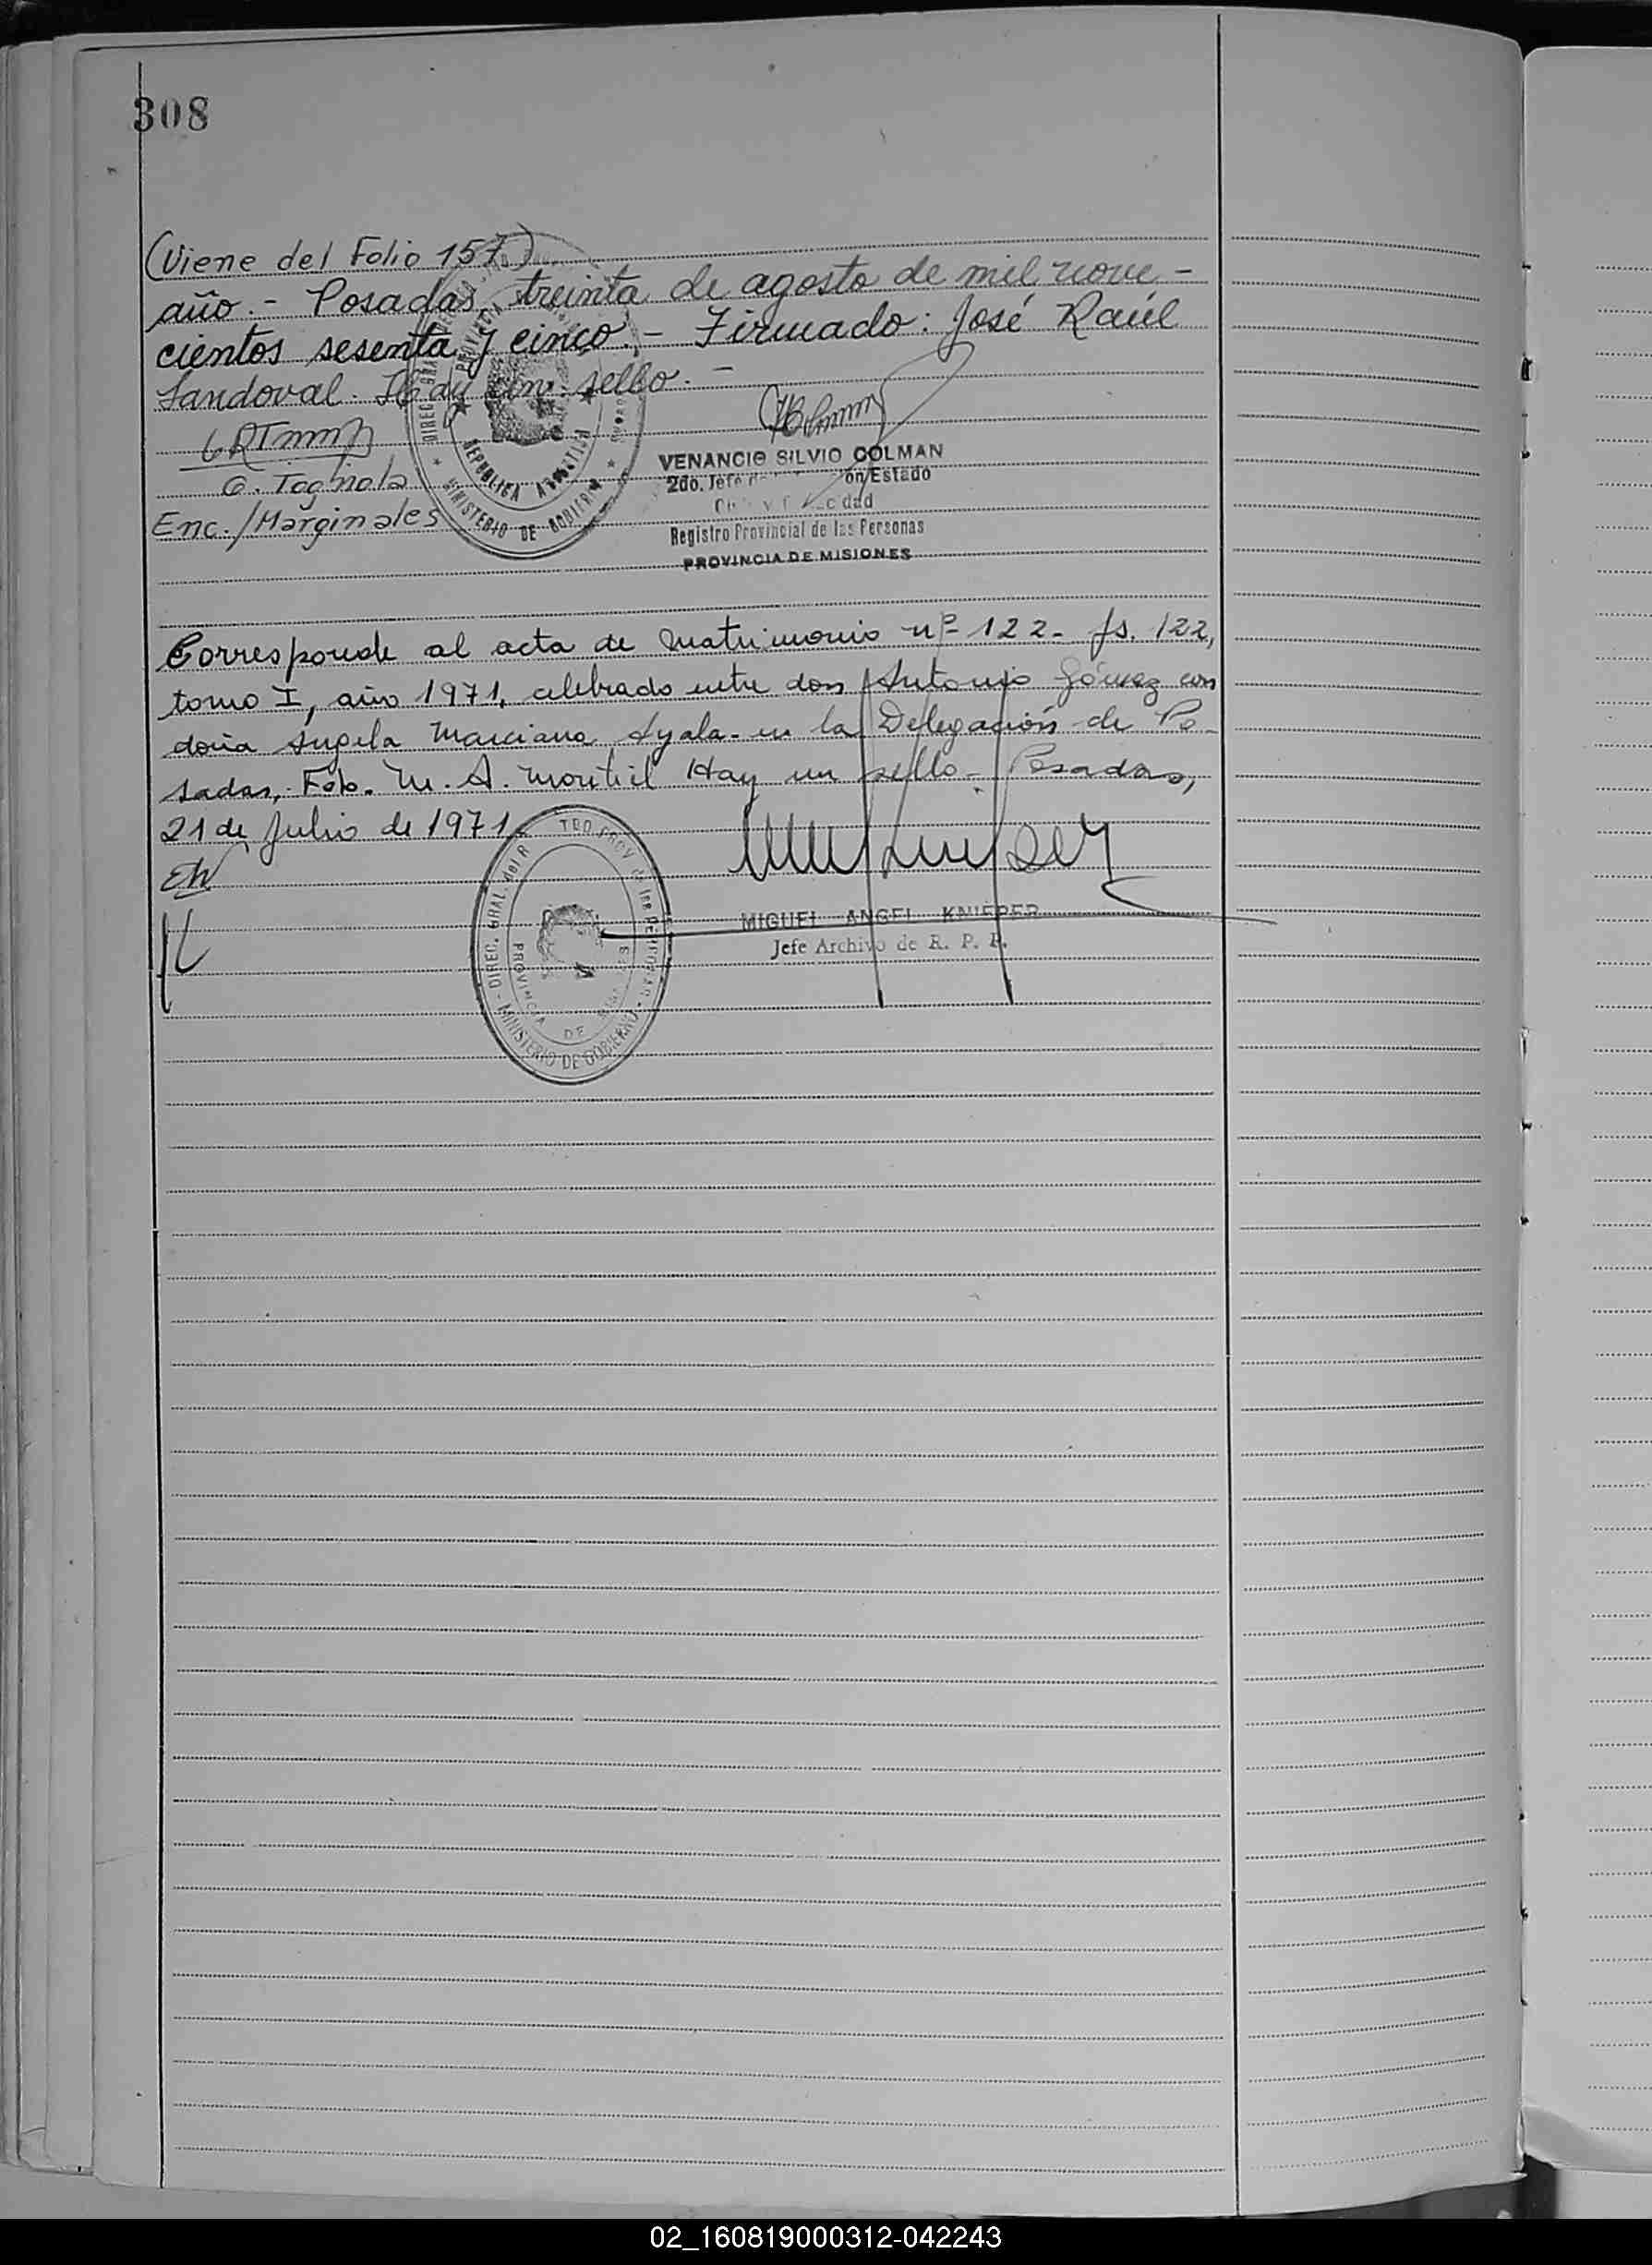 308
(Viene del Folio 157)
año. - Posadas, treinta de agosto de mil nove-
cientos sesenta y cinco. - Firmado: José Raúl
Sandoval. Hay un sello. -
G. Tagliola
Enc./Marginales
VENANCIO SILVIO COLMAN
2do. Jefe Estado
Registro Provincial de las Personas
PROVINCIA DE MISIONES
MINISTERIO DE GOBIERNO
REPUBLICA ARGENTINA
Corresponde al acta de Matrimonio nº 122- fs. 122,
tomo I, año 1971, celebrado entre don Antonio Gómez con
doña Angela Marciana Ayala- en la Delegación de Po-
sadas, Fdo. M. A. Montiel Hay un sello- Posadas,
21 de Julio de 1971
MIGUEL ANGEL KNIEPER
Jefe Archivo de R. P. P.
DIREC. GRAL. del R
PROVINCIA DE
MINISTERIO DE GOBIERNO
02_160819000312-042243